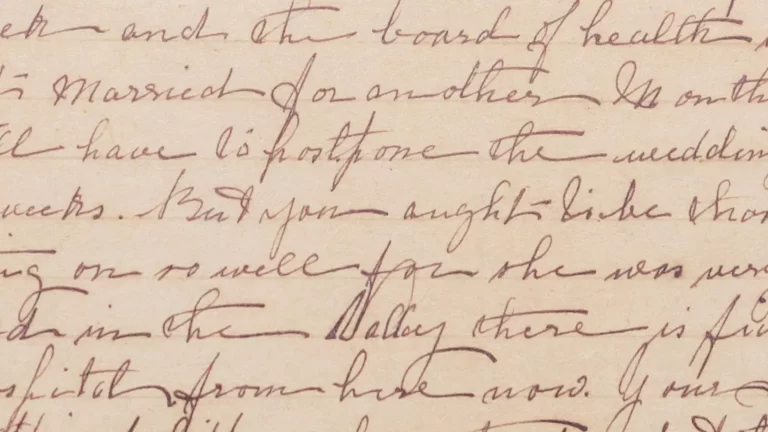 and the board of health
married for another Month
have to postpone the wedding
weeks. But you aught to be than
ing on so well for she was very
in the Valley there is fi
spital from here now. Your